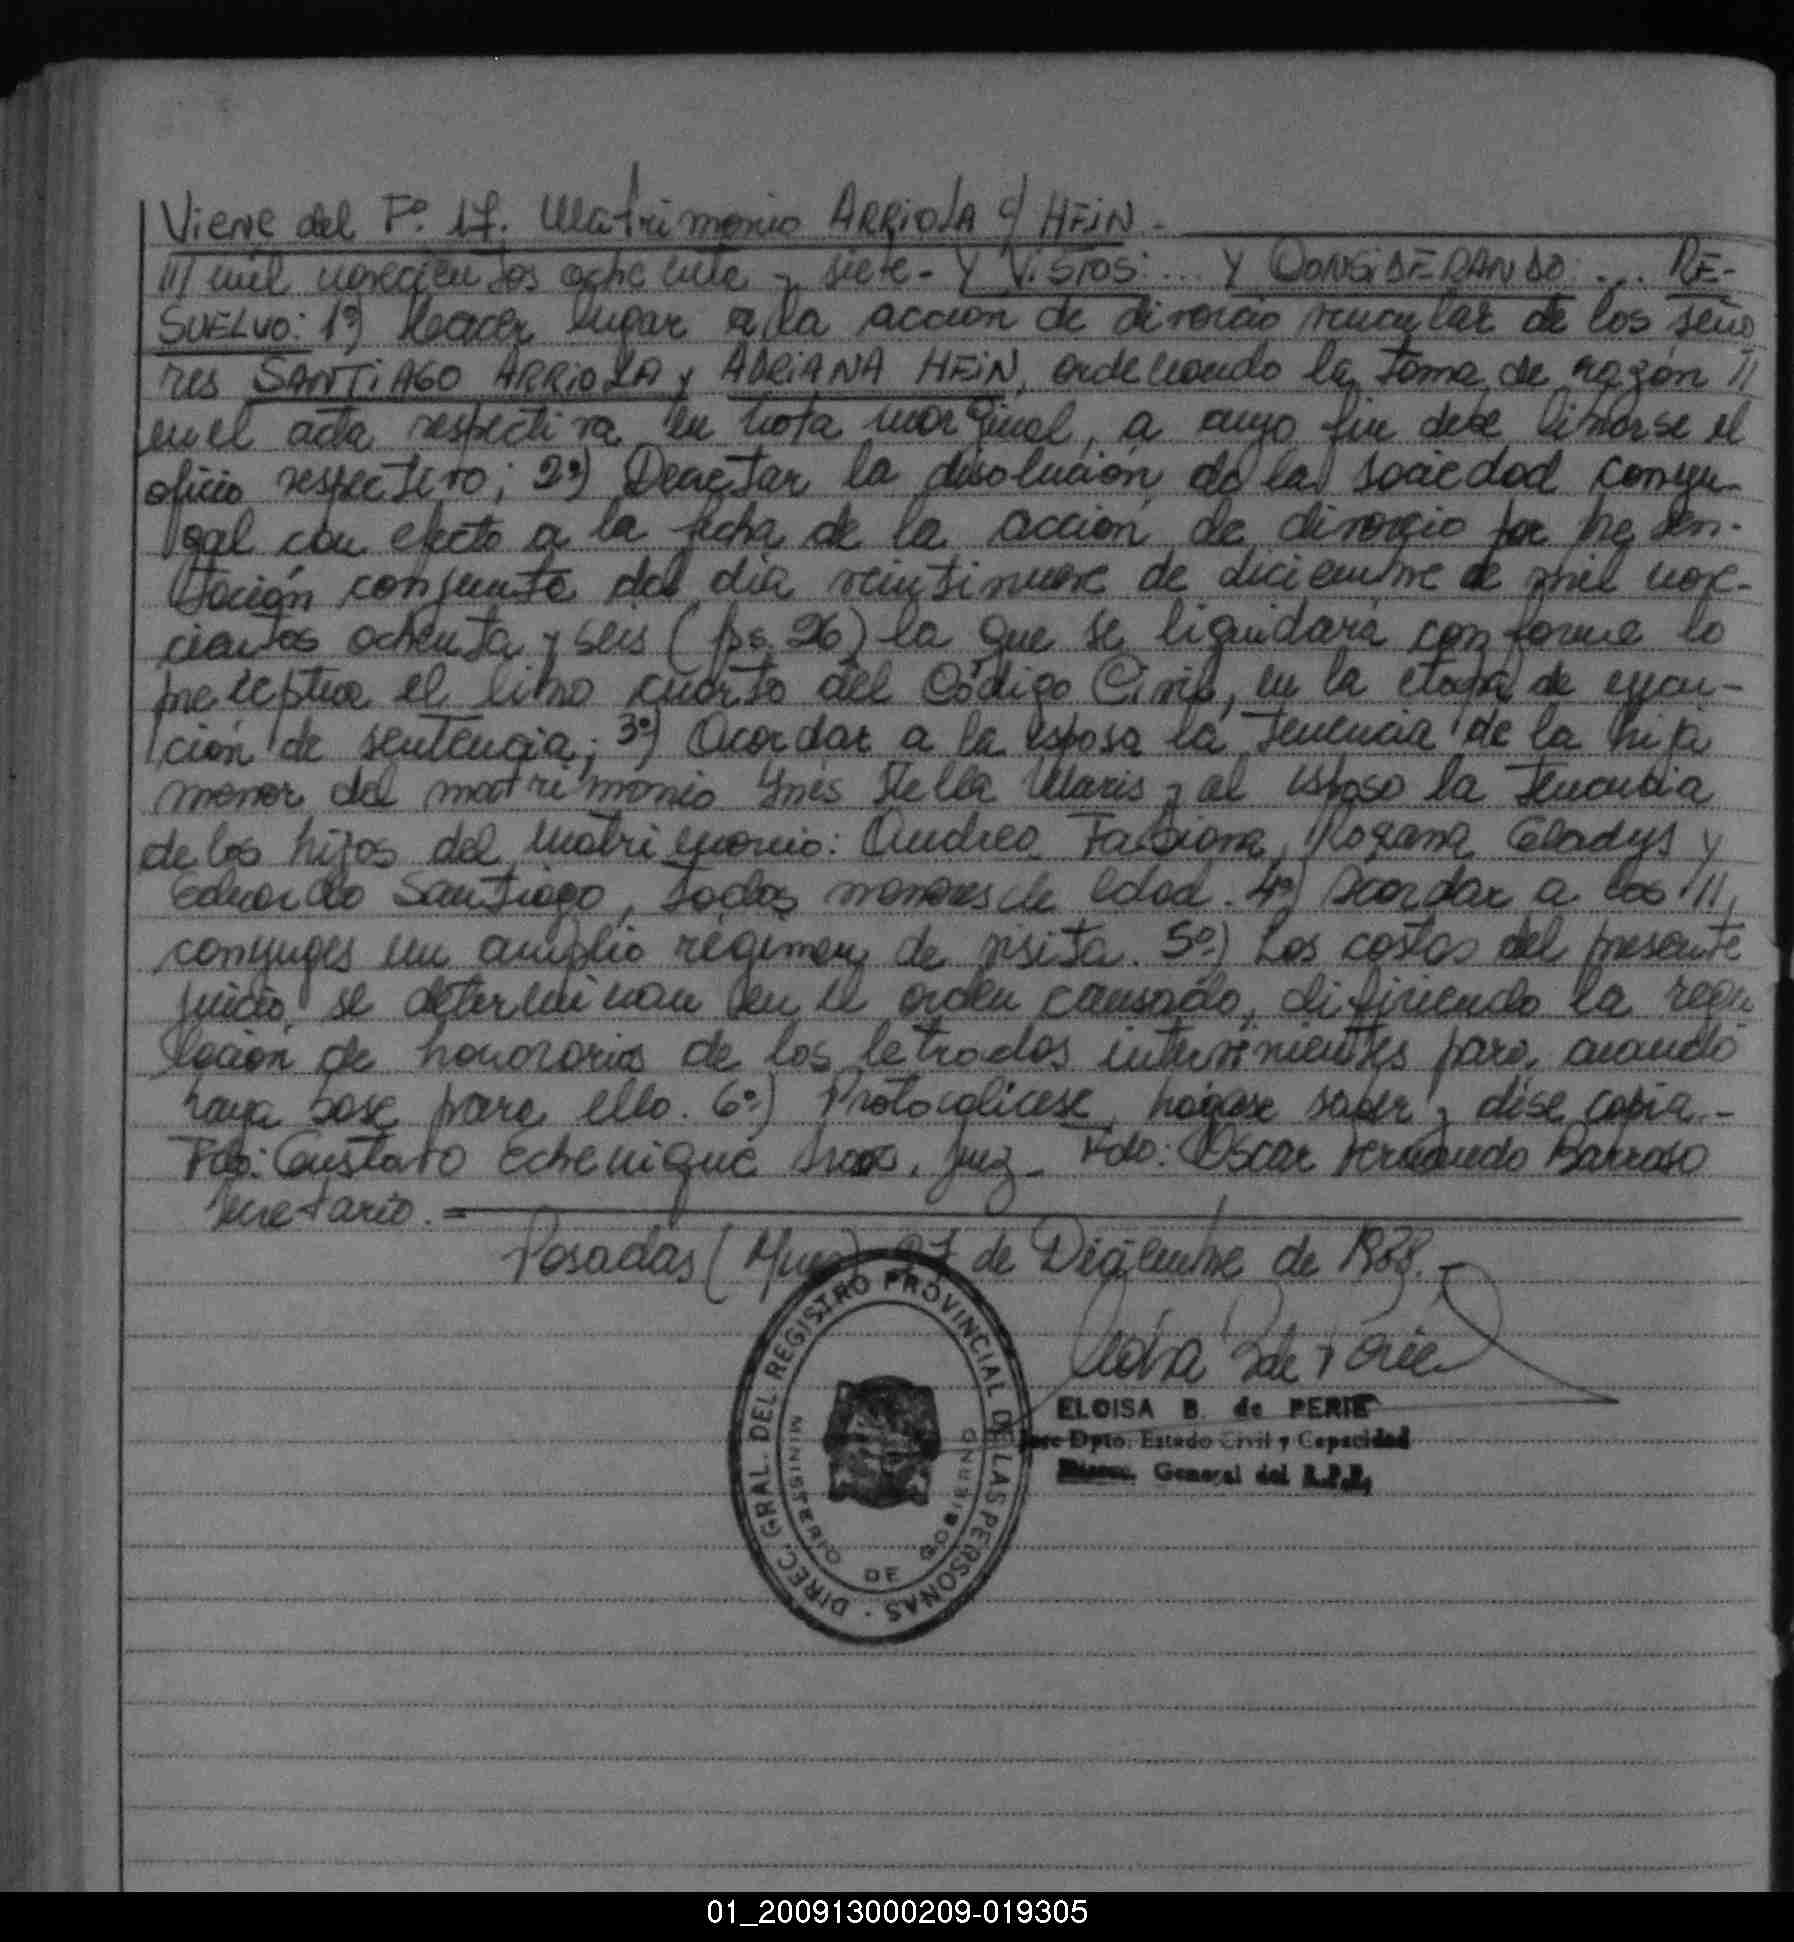 Viene del Fº 17. Matrimonio ARRIOLA c/ HEIN.-
/// mil novecientos ochenta y siete- Y VISTOS:... Y CONSIDERANDO:... RE-
SUELVO: 1º) Hacer lugar a la acción de divorcio vincular de los seño
res SANTIAGO ARRIOLA y ADRIANA HEIN, ordenando la toma de razón //
en el acta respectiva en nota marginal, a cuyo fin debe librarse el
oficio respectivo; 2º) Decretar la disolución de la sociedad conyu-
gal con efecto a la fecha de la acción de divorcio por presen-
tación conjunta del día veintinueve de diciembre de mil nove-
cientos ochenta y seis (fs. 26) la que se liquidará conforme lo
preceptua el libro cuarto del Código Civil, en la etapa de ejecu-
ción de sentencia; 3º) Acordar a la esposa la tenencia de la hija
menor del matrimonio Inés Stella Maris y al esposo la tenencia
de los hijos del matrimonio: Andrea Fabiana, Roxana Gladys y
Eduardo Santiago, todos menores de edad. 4º) Acordar a los ///
conyuges un amplio régimen de visita. 5º) Las costas del presente
juicio, se determinan en el orden causado, difiriendo la regu
lación de honorarios de los letrados intervinientes para cuando
haya base para ello. 6º) Protocolicese, hágase saber y dése copia.-
Fdo: Gustavo Echenique juez- Fdo: Oscar Fernando Barroso
Secretario.
Posadas (Mnes) 27 de Diciembre de 1988.-
ELOISA B. de PERIE
Jefe Dpto. Estado Civil y Capacidad
Direcc. General del R.P.P.
DIREC. GRAL. DEL REGISTRO PROVINCIAL DE LAS PERSONAS ·
MINISTERIO DE GOBIERNO
01_200913000209-019305